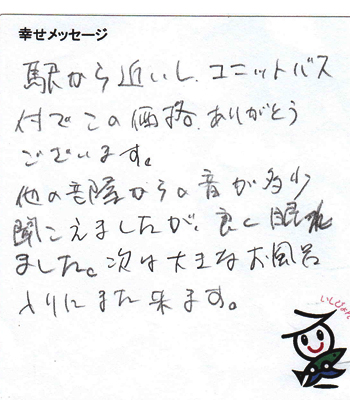 幸せメッセージ
駅から近いし、ユニットバス
付でこの価格、ありがとう
ございます。
他の部屋からの音が多少
聞こえましたが、良く眠れ
ました。次は大きなお風呂
入りにまた来ます。